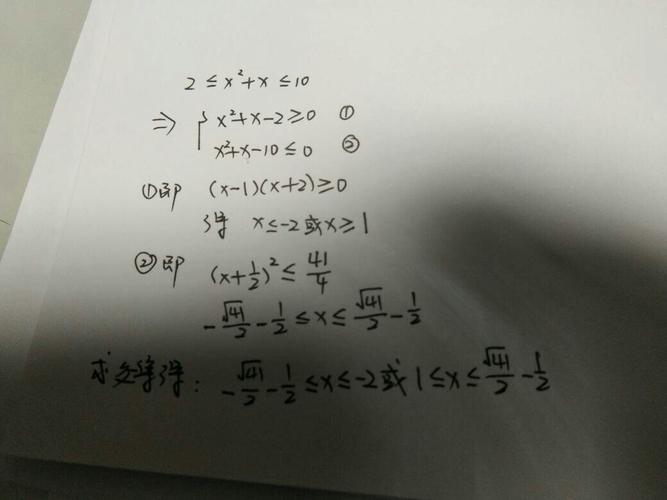 2 ≤ x²+x ≤ 10
⇒ { x²+x-2≥0 ①
x²+x-10≤0 ②
①即 (x-1)(x+2)≥0
得 x≤-2或x≥1
②即 (x+1/2)²≤41/4
-√41/2-1/2≤x≤√41/2-1/2
求交集得: -√41/2-1/2≤x≤-2或1≤x≤√41/2-1/2